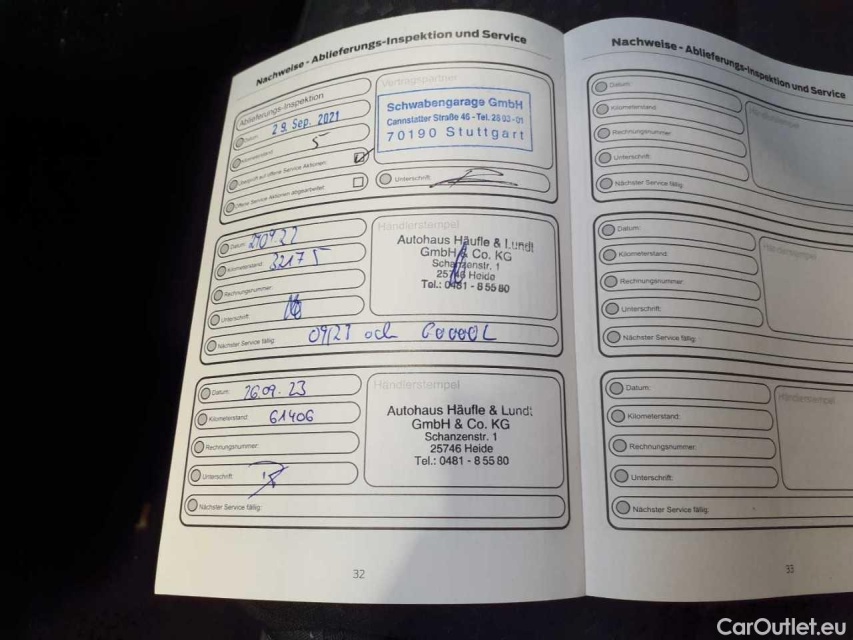 Nachweise - Ablieferungs-Inspektion und Service
Ablieferungs-Inspektion
Datum: 29. Sep. 2021
Kilometerstand: 5
Geprüft auf offene Service Aktionen:
Offene Service Aktionen abgearbeitet:
Vertragspartner
Schwabengarage GmbH
Cannstatter Straße 46 - Tel. 28 03 - 01
70190 Stuttgart
Unterschrift:
Datum:
Kilometerstand: 32175
Rechnungsnummer:
Unterschrift:
Nächster Service fällig:
Händlerstempel
Autohaus Häufle & Lundt
GmbH & Co. KG
Schanzenstr. 1
25746 Heide
Tel.: 0481 - 8 55 80
Datum: 26.09.23
Kilometerstand: 61406
Rechnungsnummer:
Unterschrift:
Nächster Service fällig:
Händlerstempel
Autohaus Häufle & Lundt
GmbH & Co. KG
Schanzenstr. 1
25746 Heide
Tel.: 0481 - 8 55 80
32
Nachweise - Ablieferungs-Inspektion und Service
Datum:
Kilometerstand:
Rechnungsnummer:
Unterschrift:
Nächster Service fällig:
Händlerstempel
Datum:
Kilometerstand:
Rechnungsnummer:
Unterschrift:
Nächster Service fällig:
Händlerstempel
Datum:
Kilometerstand:
Rechnungsnummer:
Unterschrift:
Nächster Service fällig:
Händlerstempel
33
CarOutlet.eu